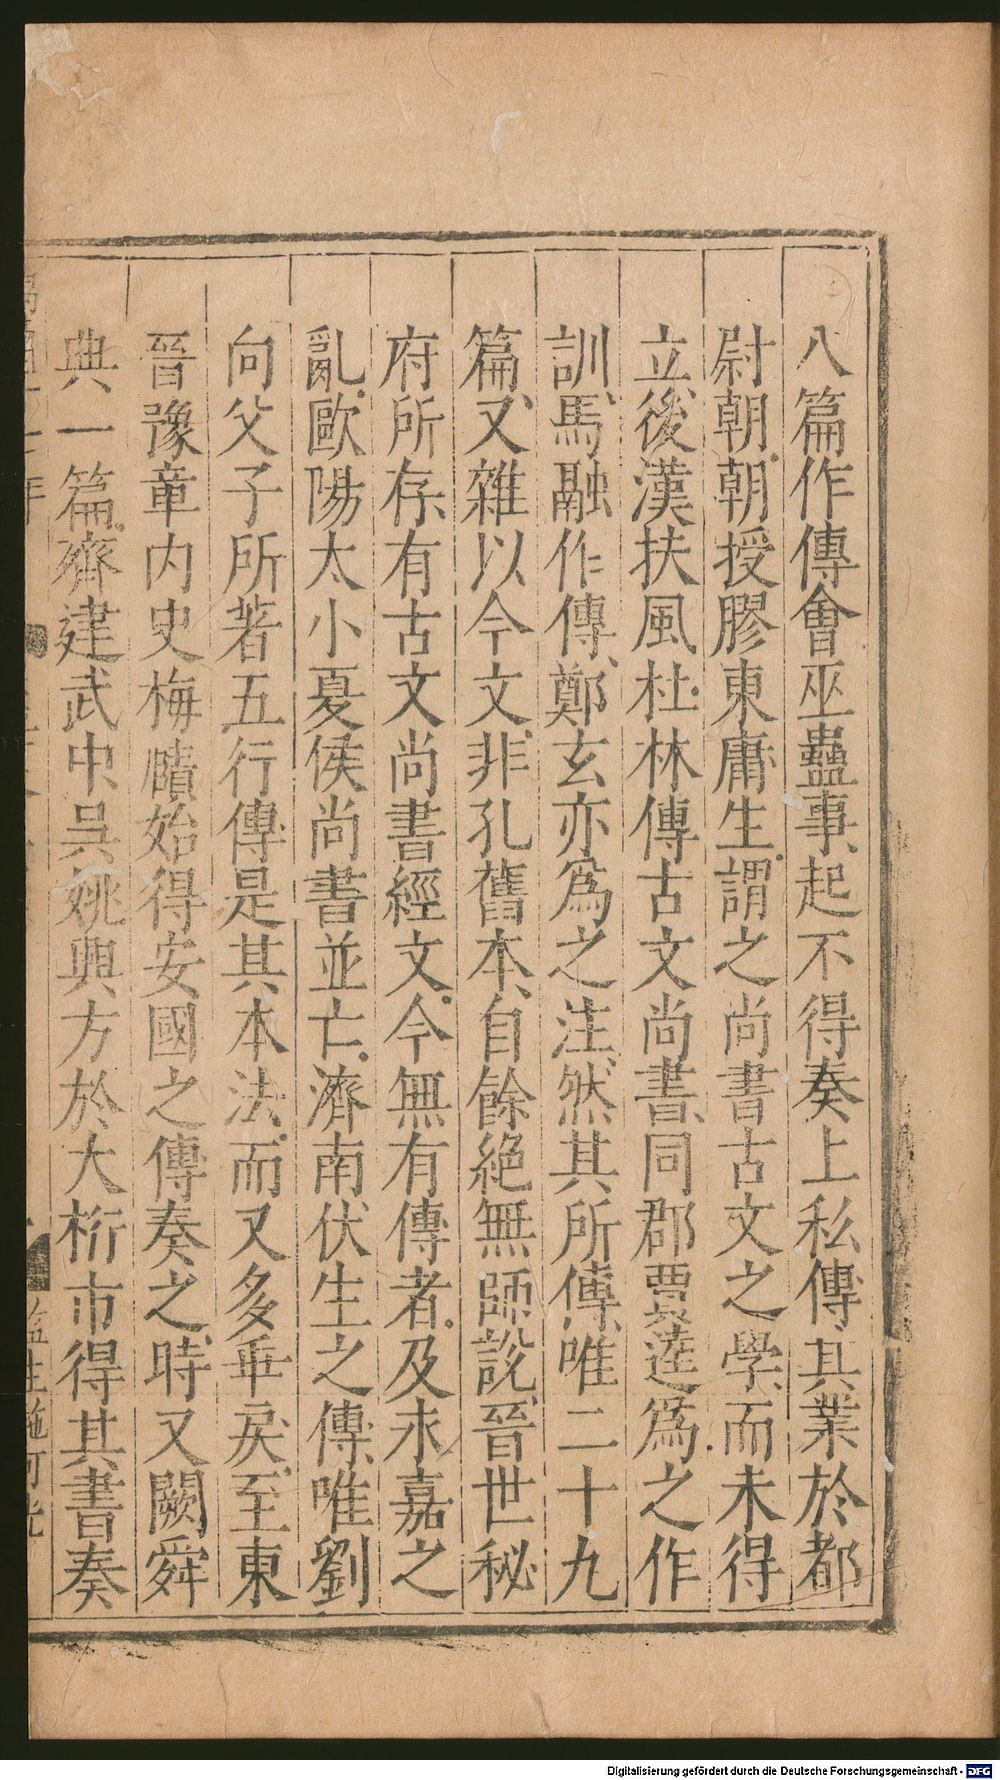 八篇作傳會巫蠱事起不得奏上私傳其業於都
尉朝朝授膠東庸生謂之尚書古文之學而未得
立後漢扶風杜林傳古文尚書同郡賈逵爲之作
訓馬融作傳鄭玄亦爲之注然其所傳唯二十九
篇又雜以今文非孔舊本自餘絕無師說晉世秘
府所存有古文尚書經文今無有傳者及永嘉之
亂歐陽大小夏侯尚書並亡濟南伏生之傳唯劉
向父子所著五行傳是其本法而又多乖戾至東
晉豫章内史梅賾始得安國之傳奏之時又闕舜
典一篇齊建武中吳姚興方於大桁市得其書奏
監生施可光
Digitalisierung gefördert durch die Deutsche Forschungsgemeinschaft - DFG